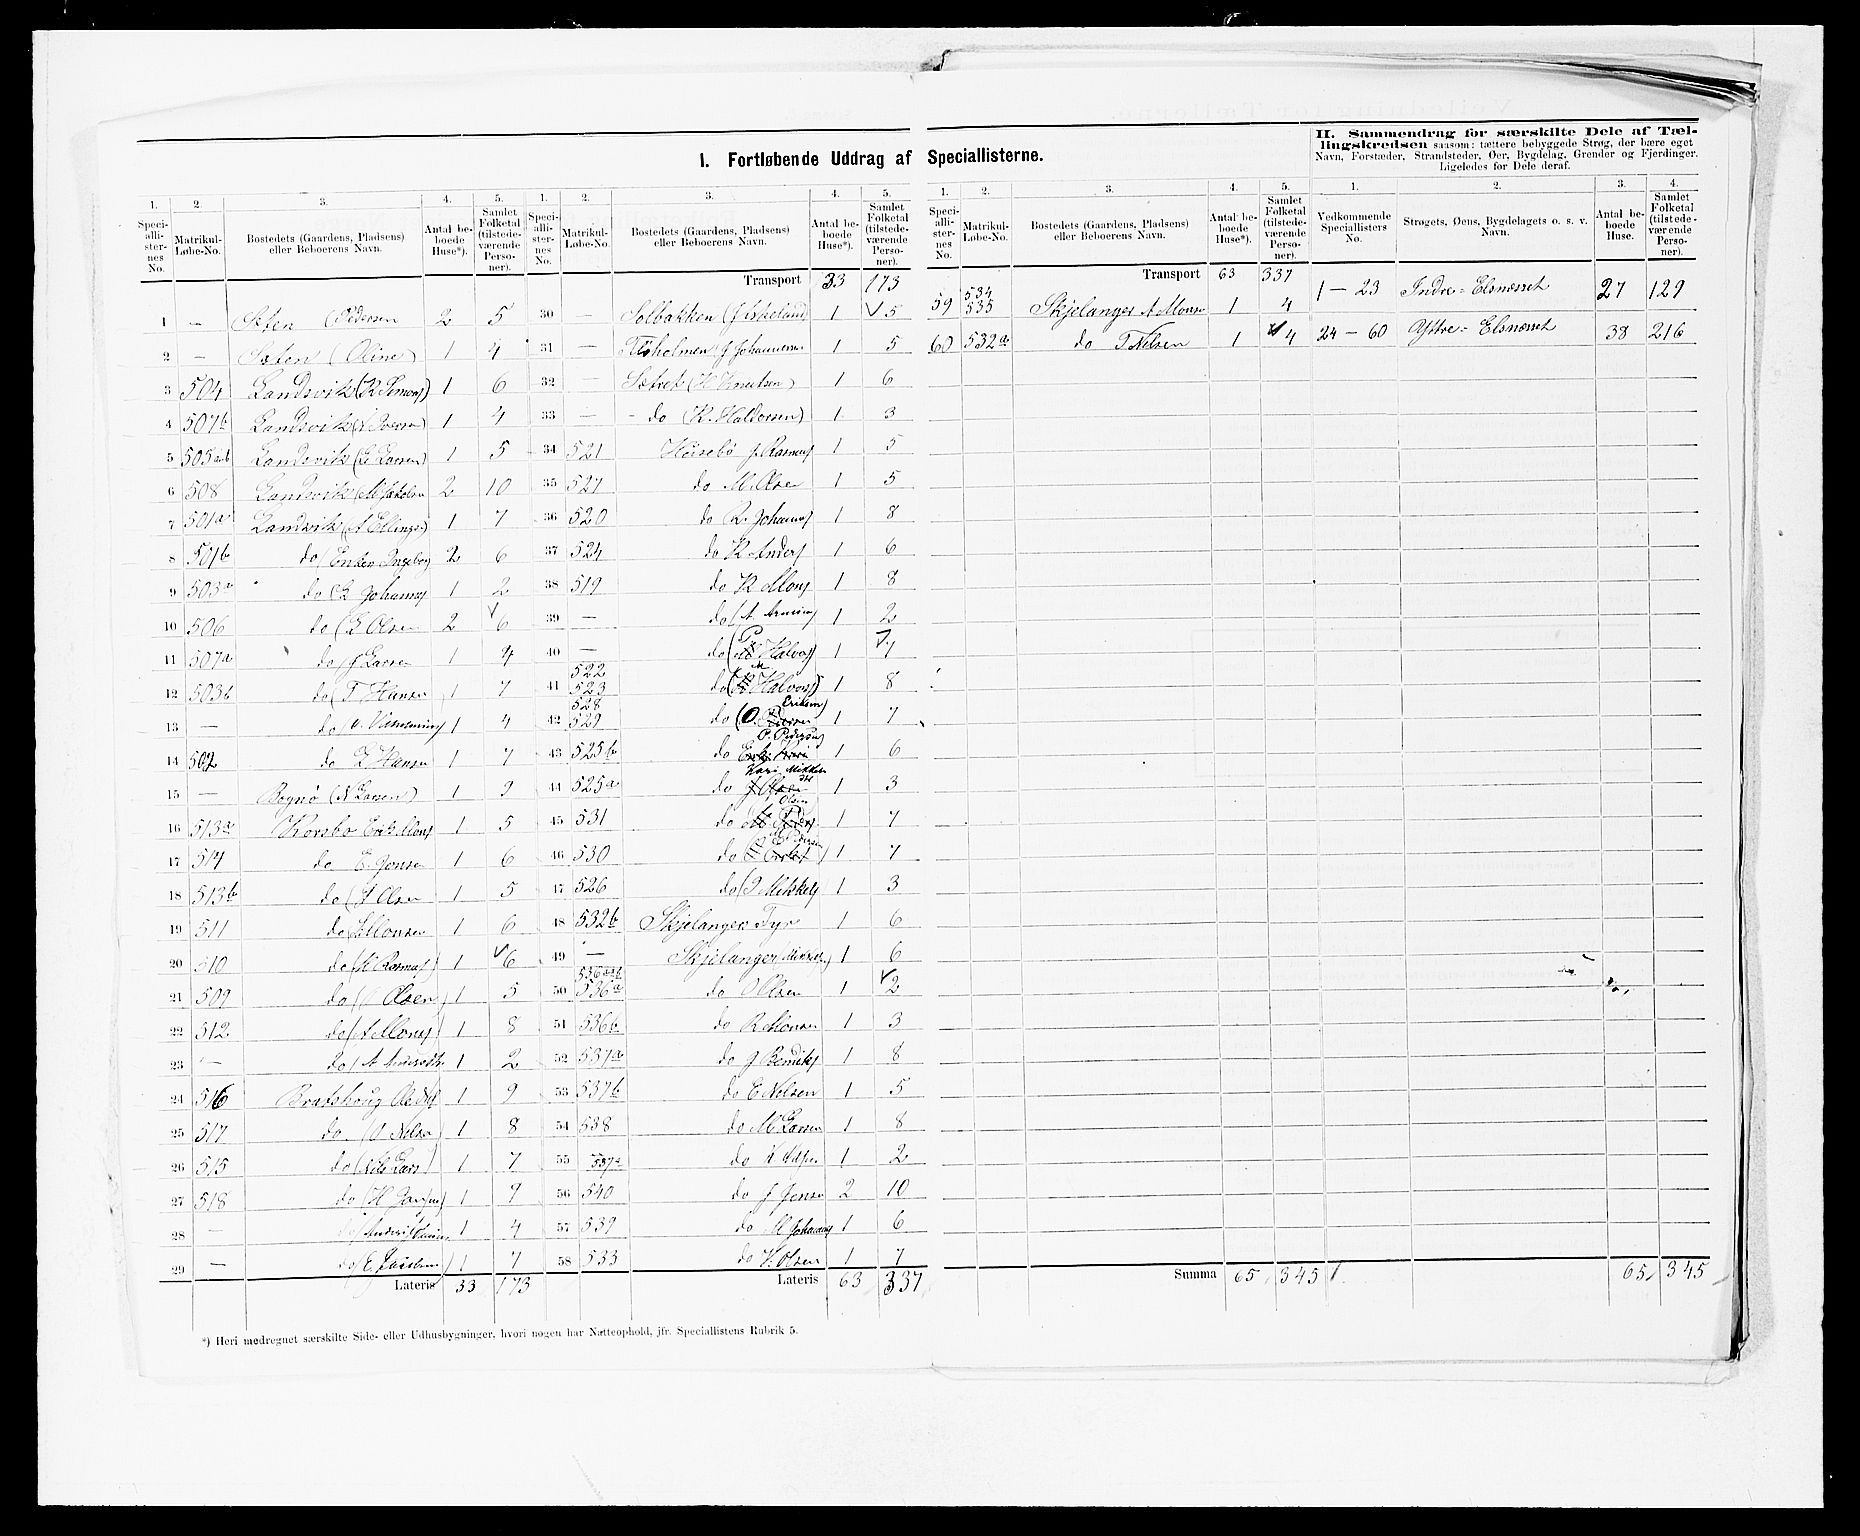 I. Fortløbende Uddrag af Speciallisterne.
II. Sammendrag for særskilte Dele af Tæl-
lingskredsen saasom: tættere bebyggede Strøg, der bære eget
Navn, Forstæder, Strandsteder, Øer, Bygdelag, Grender og Fjerdinger.
Ligeledes for Dele deraf.
1. 2. 3. 4. 5.
Specialli-ster-nes No. Matrikul-Løbe-No. Bostedets (Gaardens, Pladsens) eller Beboerens Navn. Antal be-boede Huse*). Samlet Folketal (tilstede-værende Perso-ner).
1 — Sæten (Pedersen 2 5
2 — Sæten (Oline) 1 4
3 504 Landsvik (R Simons) 1 6
4 507b Landsvik ( Iversen) 1 4
5 505 Landsvik (L Larsen) 1 5
6 508 Landsvik (M Jakobsen 2 10
7 501a Landsvik (A Ellings) 1 7
8 501b do (Enken Ingeborg 2 6
9 503a do (L Johannes 1 2
10 506 do (L Olsen 2 6
11 507a do (J Larsen 1 4
12 503b do (T Hansen 1 7
13 — do 1 4
14 502 do L Hansen 1 7
15 — Bognø (N Larsen) 1 9
16 513a Korsbø Erik Mons 1 5
17 514 do E. Jonsen 1 6
18 513b do (A Olsen 1 5
19 511 do Monsen 1 6
20 510 do (K Rasmus) 1 6
21 509 do ( Olsen) 1 5
22 512 do (A Mons) 1 8
23 — do (A 1 2
24 516 Bratshoug Ole 1 9
25 517 do (O Nelsen 1 8
26 515 do (Nils Lars) 1 7
27 518 do (H 1 9
28 — do 1 4
29 — do (E. 1 7
Lateris 33 173
Transport 33 173
30 — Solbakken (J 1 5
31 — J Johannesen 1 5
32 — Sætret (H Knutsen) 1 6
33 — do (R. Haldorsen) 1 3
34 521 Høisebø J. Rasmus 1 5
35 527 do M. Olsen 1 5
36 520 do R. Johannes 1 8
37 524 do R Anders 1 6
38 519 do R Mons 1 8
39 — do (A. 1 2
40 — do (P Halvors) 1 7
41 522 523 do (M Halvors) 1 8
42 528 529 do (O. Eriksen) 1 7
43 525b do P. Pedersen 1 6
44 525a do Kari Mikkels 1 3
45 531 do Olsen 1 7
46 530 do 1 7
47 526 do (I Mikkels 1 3
48 532b Skjelanger Fyr 1 6
49 — Skjelanger Mikkels) 1 6
50 536a do O Olsen 1 2
51 536b do R Monsen 1 3
52 537a do J Bendiks 1 8
53 537b do E Nelsen 1 5
54 538 do M Larsen 1 8
55 do 1 2
56 540 do J Jensen 2 10
57 539 do M Johannes 1 6
58 533 do H. Olsen 1 7
Lateris 63 337
Transport 63 337
59 534 535 Skjelanger A Monsen 1 4
60 532a do T Nelsen 1 4
Summa 65 345
Vedkommende Speciallisters No. Strøgets, Øens, Bygdelagets o. s. v. Navn. Antal be-boede Huse. Samlet Folketal (tilstede-værende Perso-ner).
1 — 23 Indre-Elsnæsset 27 129
24 — 60 Yttre-Elsnæsset 38 216
65 345
*) Heri medregnet særskilte Side- eller Udhusbygninger, hvori nogen har Natteophold, jfr. Speciallistens Rubrik 5.